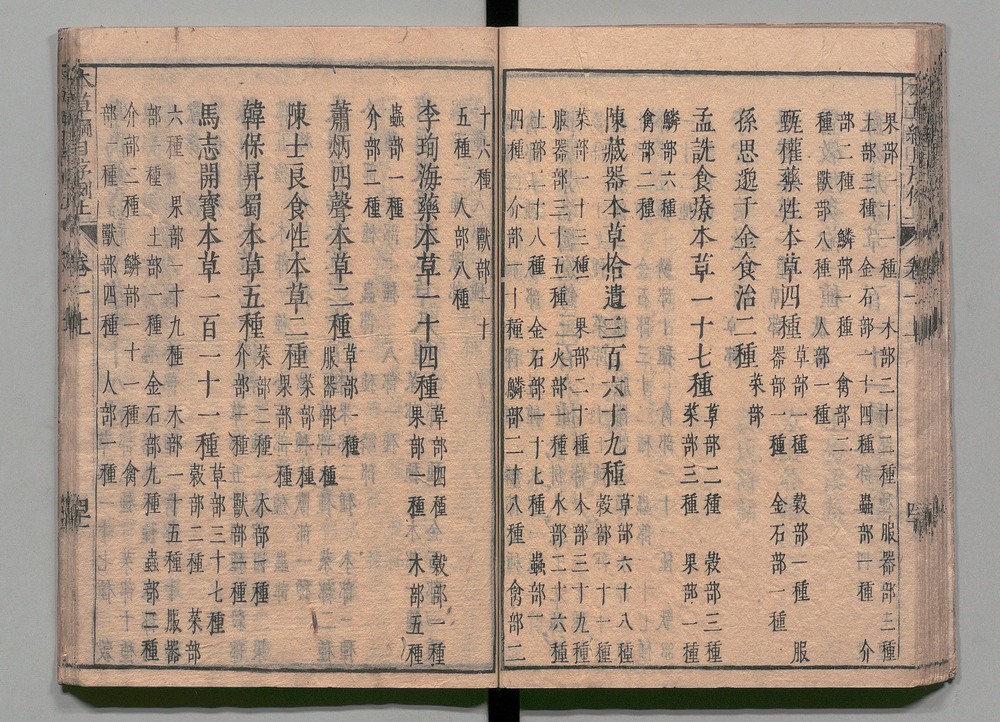 果部一十一種 木部二十三種 服器部三種
土部三種 金石部一十四種 蟲部一種 介
部二種 鱗部一種 禽部二
種 獸部八種 人部一種
甄權藥性本草四種 草部一種 穀部一種 服
器部一種 金石部一種
孫思邈千金食治二種 菜部
孟詵食療本草一十七種 草部二種 穀部三種
菜部三種 果部一種
鱗部六種
禽部二種
陳藏器本草拾遺三百六十九種 草部六十八種
穀部一十一種
菜部一十三種 果部二十種 木部三十九種
服器部三十五種 火部一種 水部二十六種
土部二十八種 金石部一十七種 蟲部一
四種 介部一十種 鱗部二十八種 禽部二
十六種 獸部一十
五種 人部八種
李珣海藥本草一十四種 草部四種 穀部一種
果部一種 木部五種
蟲部一種
介部二種
蕭炳四聲本草二種 草部一種
服器部一種
陳士良食性本草二種 菜部一種
果部一種
韓保昇蜀本草五種 菜部二種 木部一種
介部一種 獸部一種
馬志開寶本草一百一十一種 草部三十七種
穀部二種 菜部
六種 果部一十九種 木部一十五種 服器
部一種 土部一種 金石部九種 蟲部二種
介部二種 鱗部一十一種 禽
部一種 獸部四種 人部一種
本草綱目序例上 卷一上